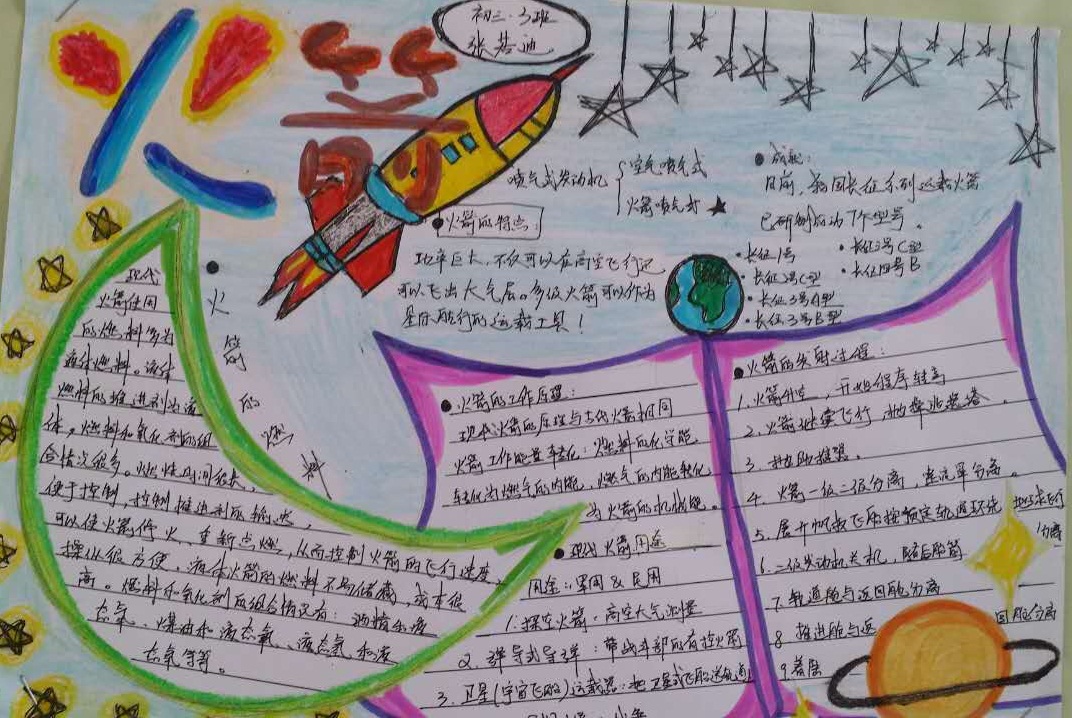 火箭
初三·3班
张若迪
喷气式发动机
空气喷气式
火箭喷气式
火箭的特点:
功率巨大,不仅可以在高空飞行还
可以飞出大气层。多级火箭可以作为
星际航行的运载工具!
成就:
目前,我国长征系列运载火箭
已研制成功7个型号。
长征1号
长征2号C型
长征3号A型
长征3号B型
长征四号B
火箭的燃料
现代
火箭使用
的燃料多为
液体燃料。液体
燃料的推进剂为液
体。燃料和氧化剂的组
合情况很多。燃烧时间很长,
便于控制,控制推进剂的输送,
可以使火箭停火,重新点燃,从而控制火箭的飞行速度,
操纵很方便,液体火箭的燃料不易储藏,成本很
高。燃料和氧化剂的组合情况有:酒精和液
态氧、煤油和液态氧、液态氢和液
态氧等等。
火箭的工作原理:
现代火箭的原理与古代火箭相同
火箭工作能量转化:燃料的化学能
转化为燃气的内能,燃气的内能转化
为火箭的机械能。
现代火箭用途
用途:军用&民用
1.探空火箭·高空大气测量
2.弹导式导弹:带战斗部的有控火箭
3.卫星(宇宙飞船)运载器:把卫星或飞船送轨道
火箭的发射过程:
1.火箭升空,开始程序转高
2.火箭继续飞行,抛掉逃逸塔。
3.抛助推器。
4.火箭一级二级分离,整流罩分离。
5.展开帆板飞船按预定轨道环绕地球飞行
6.二级发动机关机,随后船箭分离
7.轨道舱与返回舱分离
8 推进舱与返回舱分离
9着陆